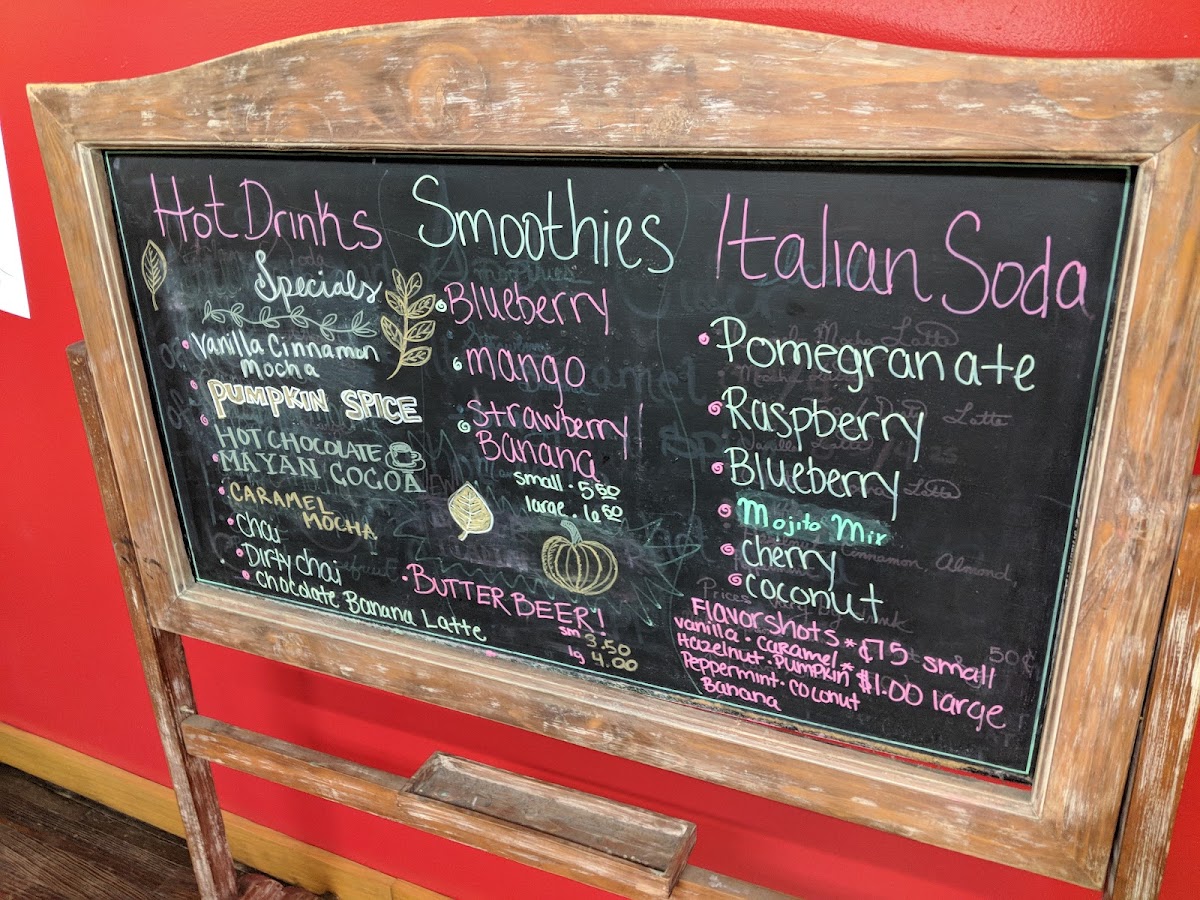 Hot Drinks
Specials
Vanilla Cinnamon
mocha
PUMPKIN SPICE
HOT CHOCOLATE
MAYAN COCOA
CARAMEL
MOCHA
Chai
Dirty chai
Chocolate Banana Latte
Smoothies
Blueberry
mango
Strawberry
Banana
small . 5.50
large . 6.50
BUTTERBEER!
sm 3.50
lg 4.00
Italian Soda
Pomegranate
Raspberry
Blueberry
Mojito Mix
Cherry
Coconut
Flavorshots * ¢75 small
vanilla · caramel *
Hazelnut · Pumpkin * $1.00 large
Peppermint · coconut
Banana